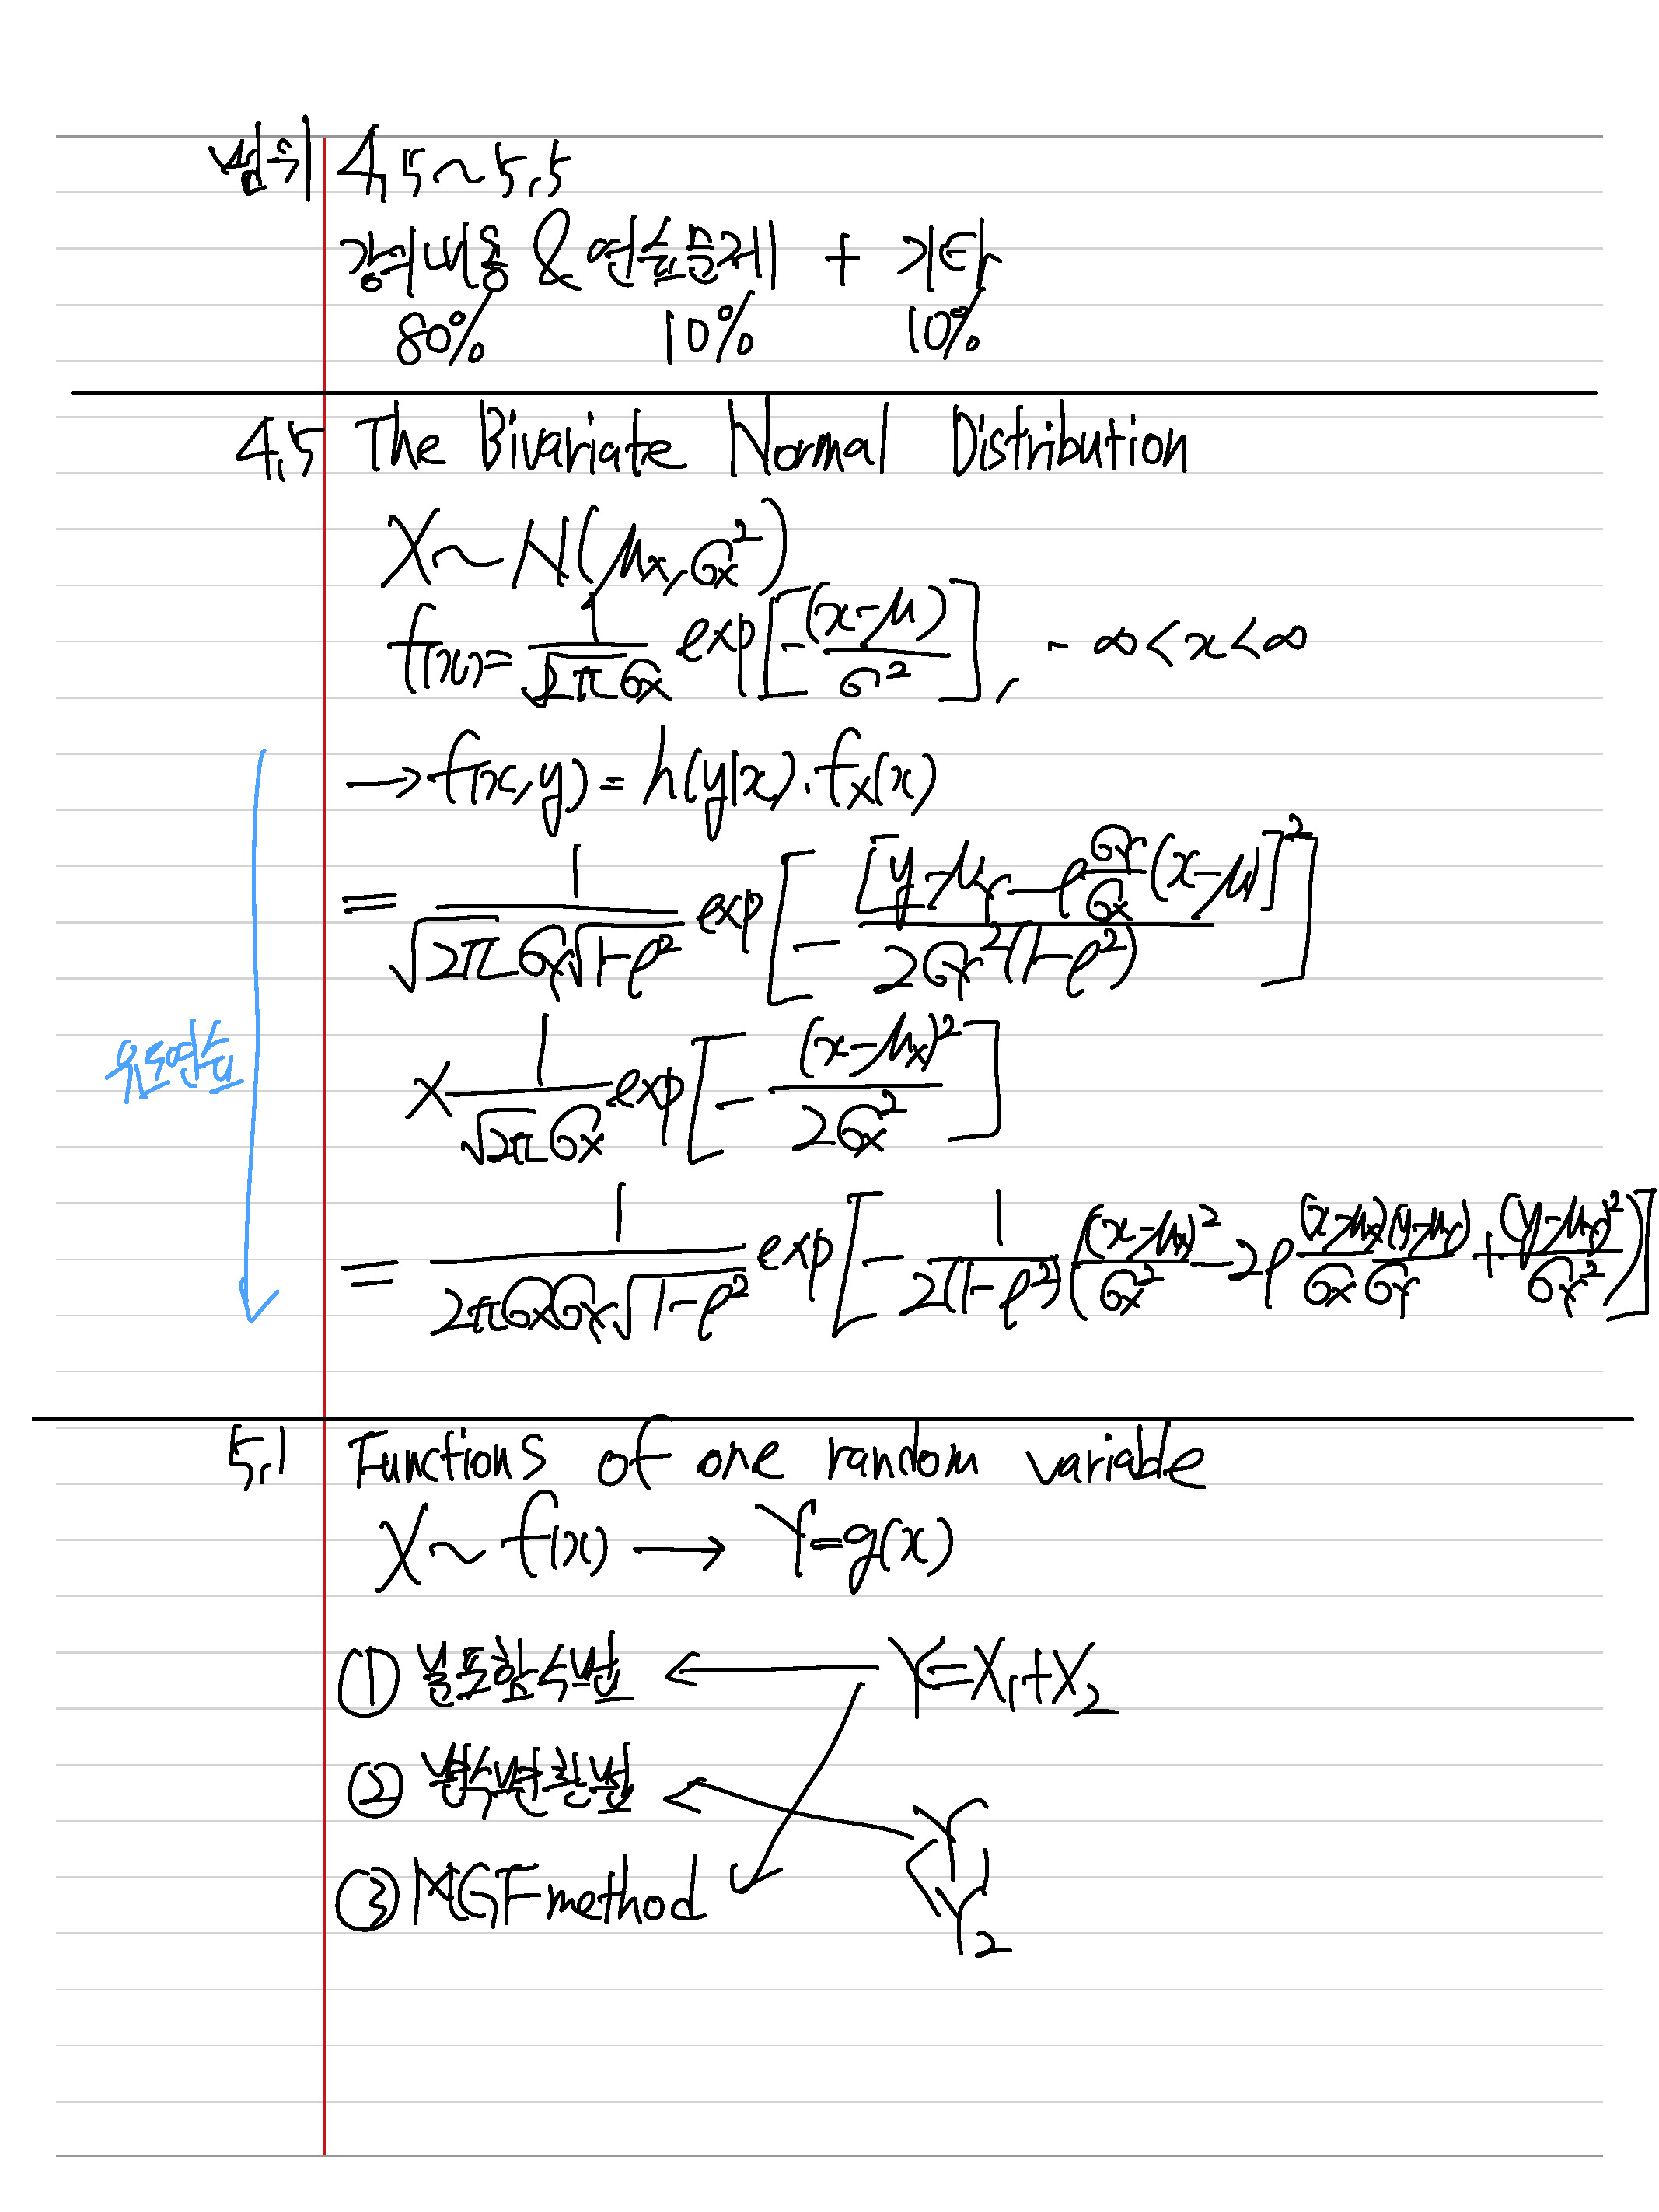 범위 4.5~5.5
강의내용 & 연습문제 + 기타
80% 10% 10%
4.5 The Bivariate Normal Distribution
X~N(μx, σx²)
f(x)=1/(√2π σx) exp[-(x-μ)/σ²], -∞<x<∞
→f(x,y)=h(y|x)·fx(x)
= 1/(√2π σY√1-ρ²) exp[-[y-μY-ρ σY/σx (x-μ)]²/2σY²(1-ρ²)]
× 1/(√2π σx) exp[-(x-μx)²/2σx²]
유도연습
= 1/(2πσxσY√1-ρ²) exp[-1/2(1-ρ²) ((x-μx)²/σx² -2ρ (x-μx)(y-μY)/σxσY + (y-μY)²/σY²)]
5.1 Functions of one random variable
X~f(x) → Y=g(x)
① 분포함수법 ← Y=X₁+X₂
② 변수변환법 ← Y
③ MGF method Y₂